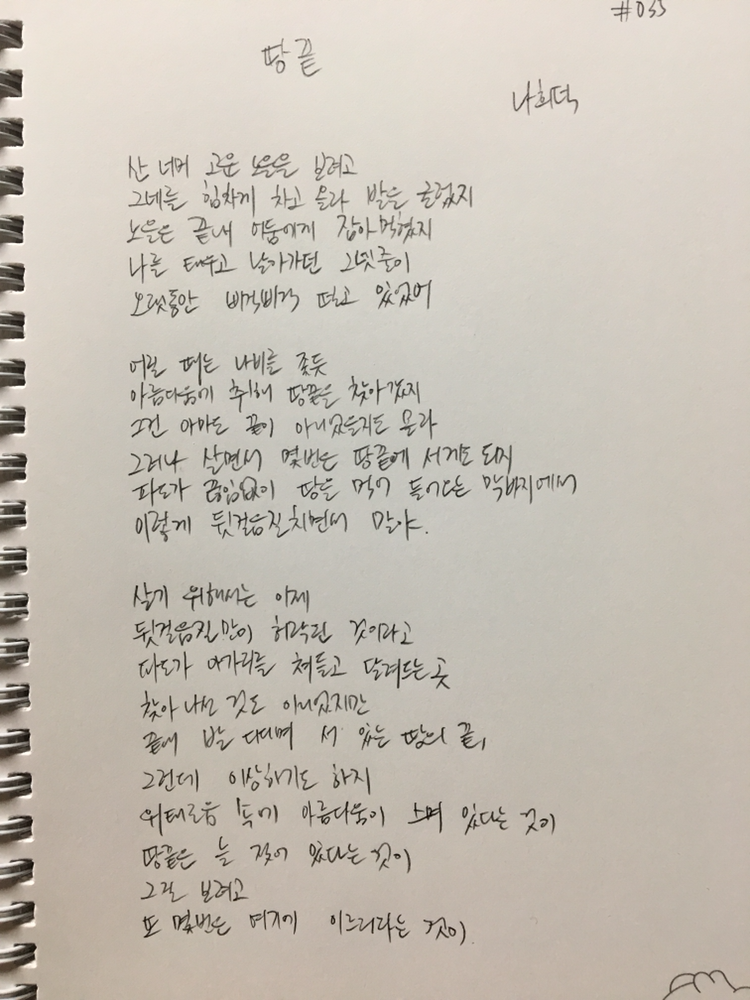 #033
땅끝
나희덕
산 너머 고운 노을을 보려고
그네를 힘차게 차고 올라 발을 굴렀지
노을은 끝내 어둠에게 잡아먹혔지
나를 태우고 날아가던 그넷줄이
오랫동안 삐걱삐걱 떨고 있었어
어릴 때는 나비를 좇듯
아름다움에 취해 땅끝을 찾아갔지
그건 아마도 끝이 아니었을지도 몰라
그러나 살면서 몇번은 땅끝에 서게도 되지
파도가 끊임없이 땅을 먹어 들어오는 막바지에서
이렇게 뒷걸음질치면서 말야.
살기 위해서는 이제
뒷걸음질만이 허락된 것이라고
파도가 아가리를 쳐들고 달려드는 곳
찾아 나선 것도 아니었지만
끝에 발 디디며 서 있는 땅의 끝,
그런데 이상하기도 하지
위태로움 속에 아름다움이 스며 있다는 것이
땅끝은 늘 젖어 있다는 것이
그걸 보려고
또 몇번은 여기에 이르리라는 것이.